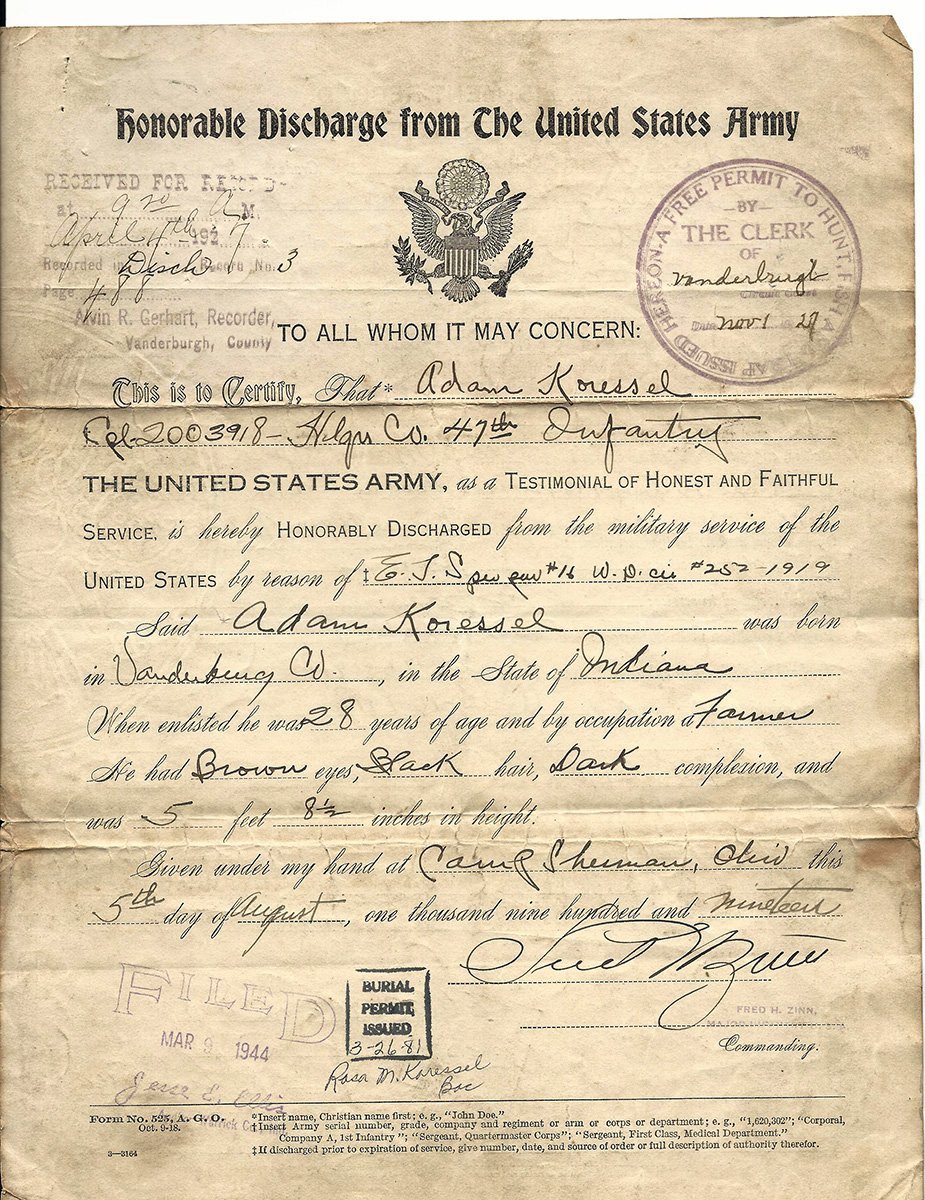 Honorable Discharge from The United States Army
RECEIVED FOR RECORD
at 9 00 A M.
April 4th 1927.
Recorded in Disch Record No. 3
Page 488
Alvin R. Gerhart, Recorder,
Vanderburgh, County
HEREON-A FREE PERMIT TO HUNT, FISH
ISSUED
-BY-
THE CLERK
OF
Vanderburgh
Circuit Court
Date Nov 1 27
TO ALL WHOM IT MAY CONCERN:
This is to Certify, That* Adam Koressel
Cpl. 2003918 - Hdqrs Co. 47th Infantry
THE UNITED STATES ARMY, as a TESTIMONIAL OF HONEST AND FAITHFUL
SERVICE, is hereby HONORABLY DISCHARGED from the military service of the
UNITED STATES by reason of ‡ E. T. S per par #16 W. D. cir #252-1919
Said Adam Koressel was born
in Vanderburg Co., in the State of Indiana
When enlisted he was 28 years of age and by occupation a Farmer
He had Brown eyes, Black hair, Dark complexion, and
was 5 feet 8½ inches in height.
Given under my hand at Camp Sherman, Ohio this
5th day of August, one thousand nine hundred and nineteen
Fred H Zinn
FRED H. ZINN,
Commanding.
FILED
MAR 9 1944
Jesse E. Ellis
BURIAL
PERMIT
ISSUED
3-26-81
Rosa M. Koressel
Form No. 525, A. G. O.
Oct. 9-18.
3—3164
*Insert name, Christian name first; e. g., "John Doe."
†Insert Army serial number, grade, company and regiment or arm or corps or department; e. g., "1,620,302"; "Corporal,
Company A, 1st Infantry"; "Sergeant, Quartermaster Corps"; "Sergeant, First Class, Medical Department."
‡If discharged prior to expiration of service, give number, date, and source of order or full description of authority therefor.